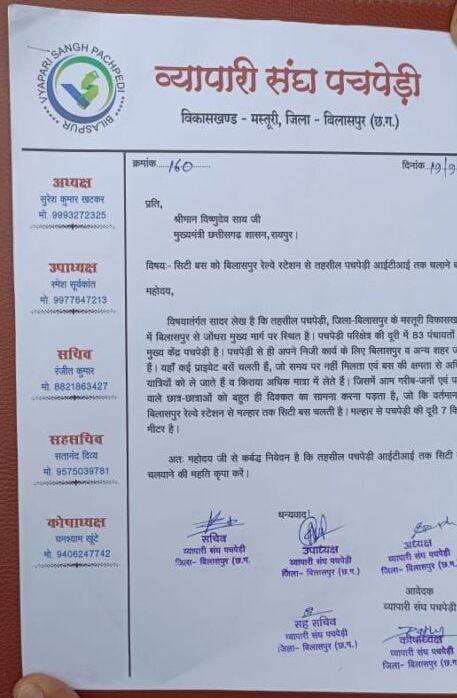 VYAPARI SANGH PACHPEDI
BILASPUR
व्यापारी संघ पचपेड़ी
विकासखण्ड - मस्तूरी, जिला - बिलासपुर (छ.ग.)
क्रमांक 160
दिनांक 19/9
अध्यक्ष
सुरेश कुमार खटकर
मो. 9993272325
उपाध्यक्ष
रमेश सूर्यकांत
मो. 9977647213
सचिव
रंजीत कुमार
मो. 8821863427
सहसचिव
सतानंद दिव्य
मो. 9575039781
कोषाध्यक्ष
घनश्याम खूंटे
मो. 9406247742
प्रति,
श्रीमान विष्णुदेव साय जी
मुख्यमंत्री छत्तीसगढ़ शासन, रायपुर।
विषयः- सिटी बस को बिलासपुर रेल्वे स्टेशन से तहसील पचपेड़ी आईटीआई तक चलाने
महोदय,
विषयातंर्गत सादर लेख है कि तहसील पचपेड़ी, जिला-बिलासपुर के मस्तूरी
में बिलासपुर से जोंधरा मुख्य मार्ग पर स्थित है। पचपेड़ी परिक्षेत्र की दूरी में 83 पंचायतों
मुख्य केंद्र पचपेड़ी है। पचपेड़ी से ही अपने निजी कार्य के लिए बिलासपुर व अन्य शहर
है। यहाँ कई प्राइवेट बसें चलती हैं, जो समय पर नहीं मिलता एवं बस की क्षमता से
यात्रियों को ले जाते है व किराया अधिक मात्रा में लेते हैं। जिसमें आम गरीब-जनों एवं
वाले छात्र-छात्राओं को बहुत ही दिक्कत का सामना करना पड़ता है, जो कि
बिलासपुर रेल्वे स्टेशन से मल्हार तक सिटी बस चलती है। मल्हार से पचपेड़ी की दूरी 7
मीटर है।
अतः महोदय जी से कर्बद्ध निवेदन है कि तहसील पचपेड़ी आईटीआई तक सिटी
चलवाने की महति कृपा करें।
धन्यवाद!
सचिव
व्यापारी संघ पचपेड़ी
जिला- बिलासपुर (छ.ग.
उपाध्यक्ष
व्यापारी संघ पचपेड़ी
जिला- बिलासपुर (छ.ग.)
अध्यक्ष
व्यापारी संघ पचपेड़ी
जिला- बिलासपुर (छ.ग.
आवेदक
व्यापारी संघ पचपेड़ी
सह सचिव
व्यापारी संघ पचपेड़ी
जिला- बिलासपुर (छ.ग.)
कोषाध्यक्ष
व्यापारी संघ पचपेड़ी
जिला- बिलासपुर (छ.ग.